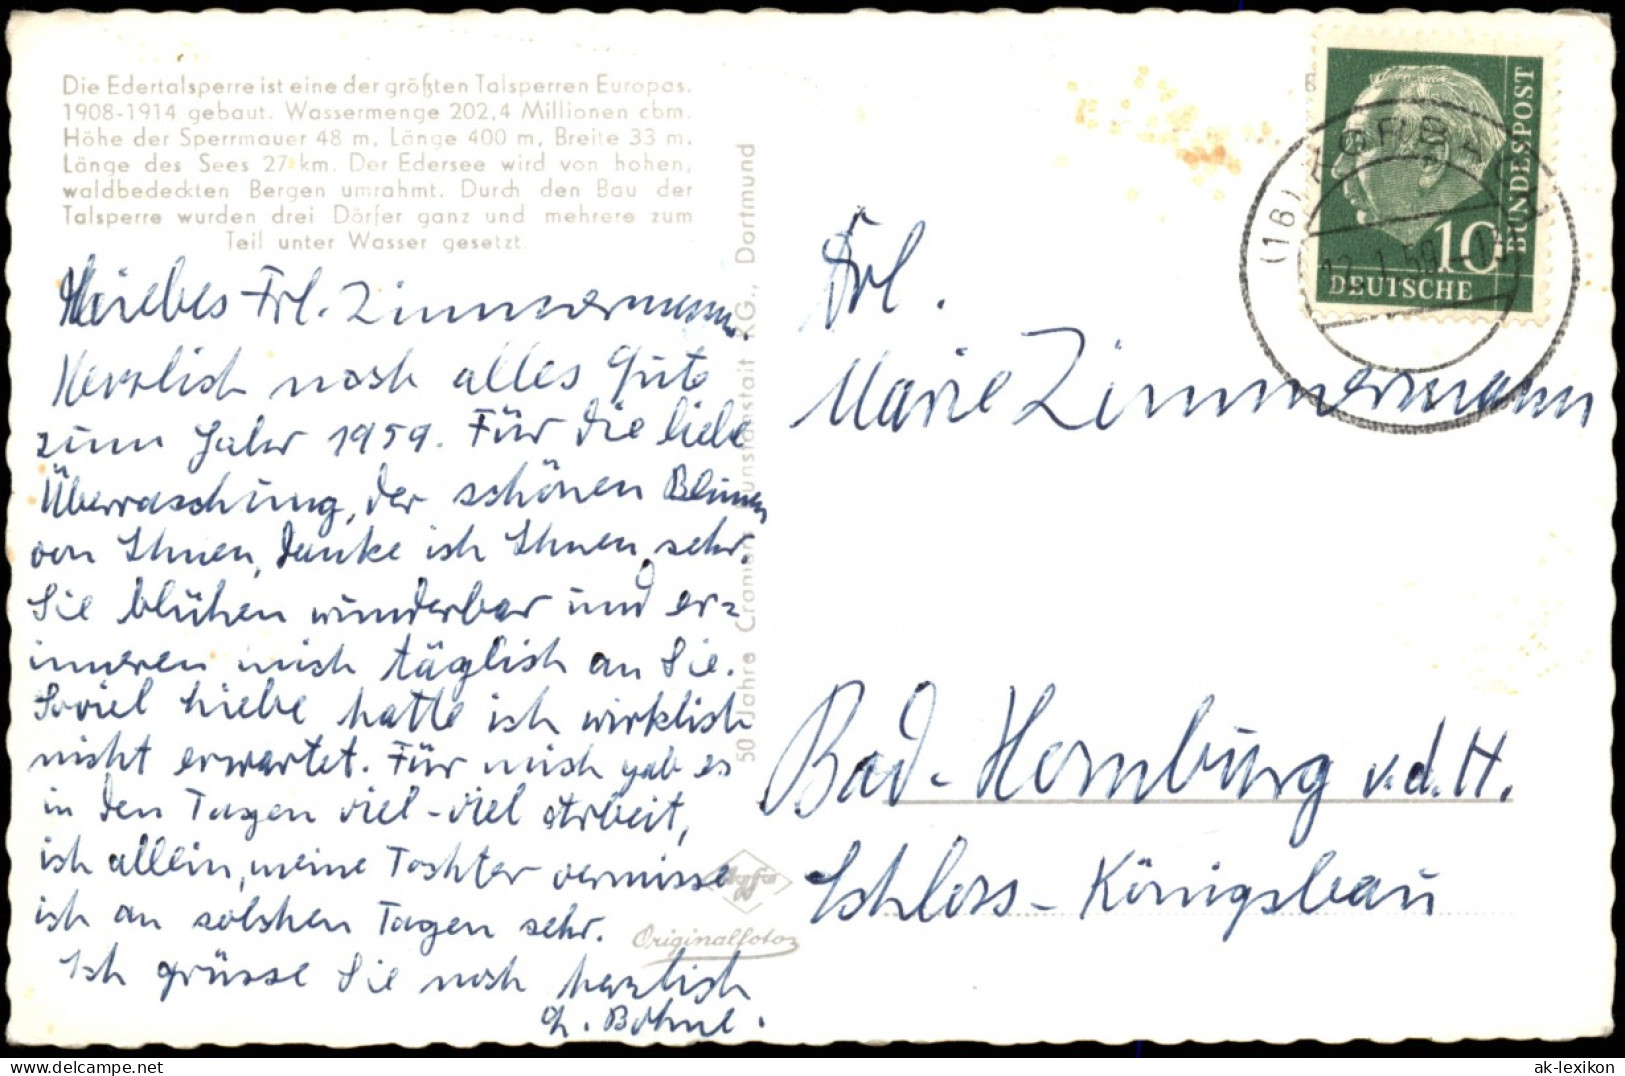 Die Edertalsperre ist eine der größten Talsperren Europas.
1908-1914 gebaut. Wassermenge 202,4 Millionen cbm.
Höhe der Sperrmauer 48 m, Länge 400 m, Breite 33 m.
Länge des Sees 27 km. Der Edersee wird von hohen,
waldbedeckten Bergen umrahmt. Durch den Bau der
Talsperre wurden drei Dörfer ganz und mehrere zum
Teil unter Wasser gesetzt.
Frl. Zimmermann.
Herzlich noch alles Gute
zum Jahr 1959. Für die liebe
Überraschung, der schönen Blumen
von Ihnen, danke ich Ihnen sehr.
Sie blühen wunderbar und er=
inneren mich täglich an Sie.
Soviel Liebe hatte ich wirklich
nicht erwartet. Für mich gab es
in den Tagen viel-viel Arbeit,
ich allein, meine Tochter vermisse
ich an solchen Tagen sehr.
Ich grüsse Sie noch herzlich
Böhne.
50 Jahre Cramers Kunstanstalt KG., Dortmund
Agfa
Originalfoto
DEUTSCHE
BUNDESPOST
10
(16)
12.1.59.-13
Frl.
Marie Zimmermann
Bad-Homburg v.d.H.
Schloss-Königsbau
www.delcampe.net
ak-lexikon